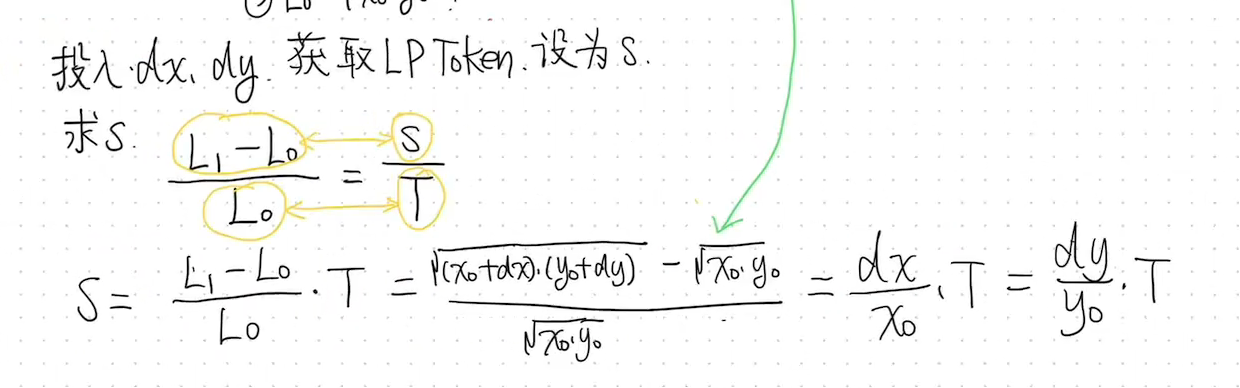 投入 dx, dy. 获取 LP Token. 设为 S.
求 S.
(L₁ - L₀) / L₀ = S / T
S = (L₁ - L₀) / L₀ · T = (√((x₀+dx)·(y₀+dy)) - √(x₀·y₀)) / √(x₀·y₀) = dx / x₀ · T = dy / y₀ · T